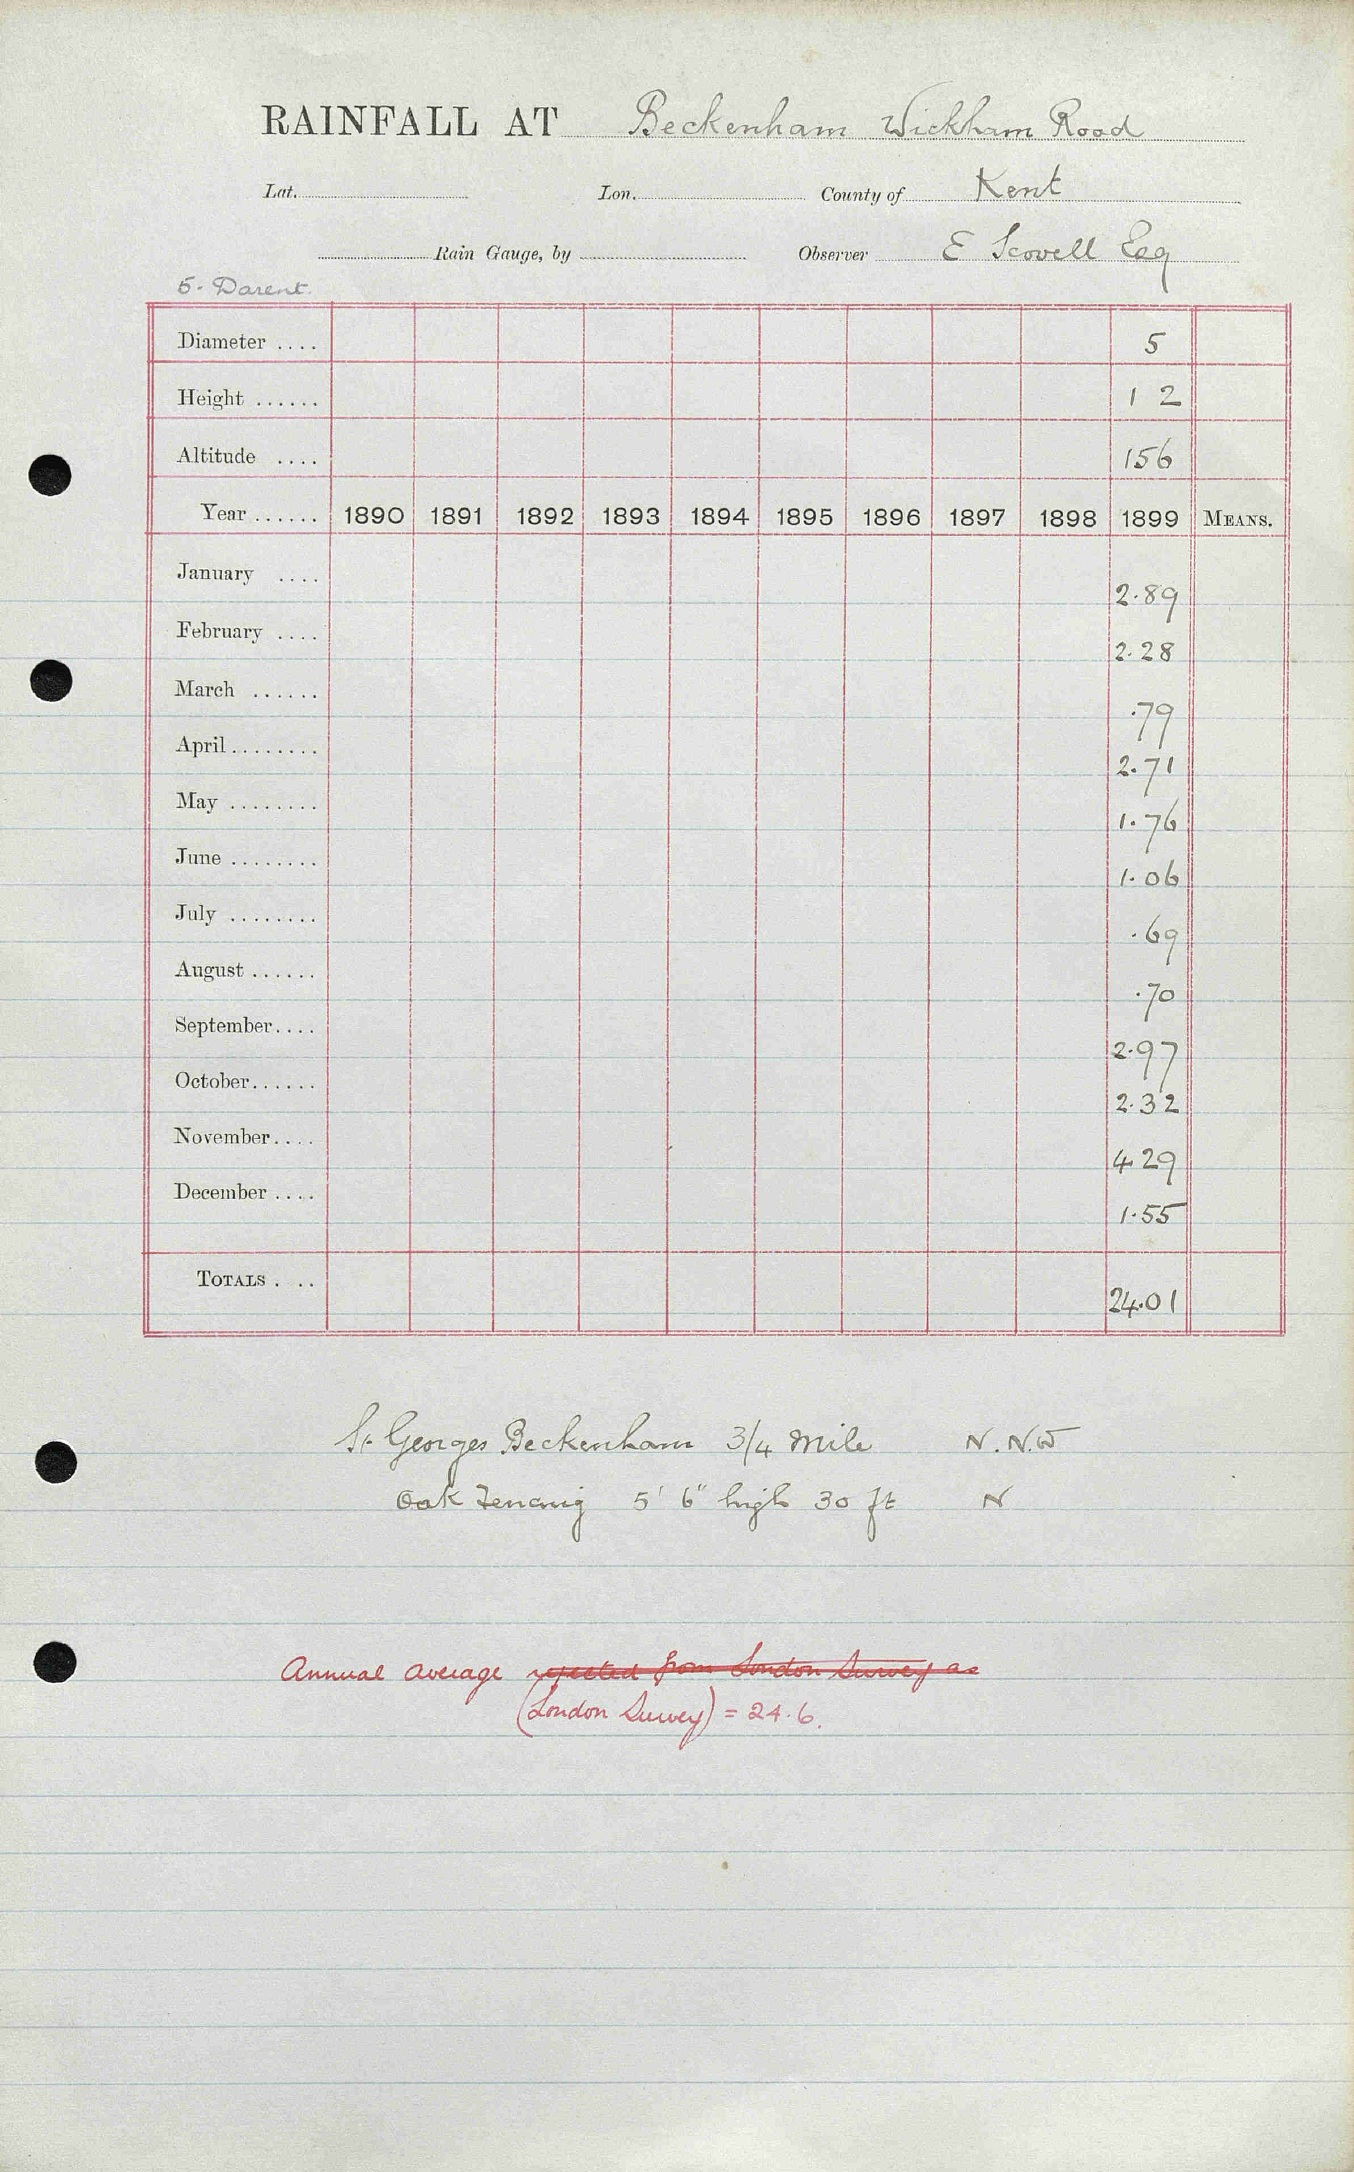 RAINFALL AT Beckenham Wickham Road
Lat. Lon. County of Kent
Rain Gauge, by Observer E Scovell Esq
5. Darent.
Diameter .... 5
Height ...... 1 2
Altitude .... 156
Year ...... 1890 1891 1892 1893 1894 1895 1896 1897 1898 1899 MEANS.
January .... 2.89
February .... 2.28
March ...... .79
April ........ 2.71
May ........ 1.76
June ........ 1.06
July ........ .69
August ...... .70
September.... 2.97
October...... 2.32
November.... 4 29
December .... 1.55
TOTALS . .. 24.01
St Georges Beckenham 3/4 Mile N.N.W
Oak Fencing 5' 6" high 30 ft N
Annual average rejected from London Survey as
(London Survey) = 24.6.